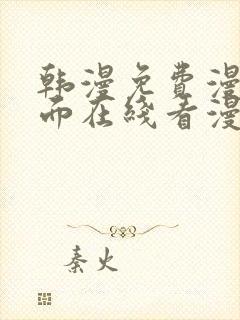 韩漫免费漫
而在线看漫
秦火